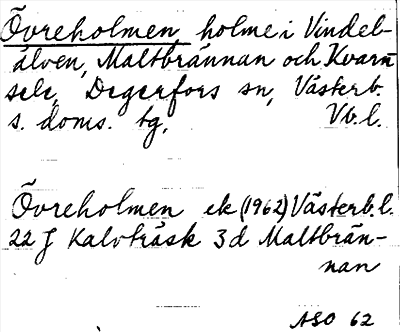 Övreholmen, holme i Vindel-
älven, Maltbrännan och Kvarn-
sele, Degerfors sn, Västerb.
s. doms. tg, Vb.l.
Övreholmen ek (1962) Västerb.l.
22 J Kalvträsk 3d Maltbrän-
nan
ASO 62